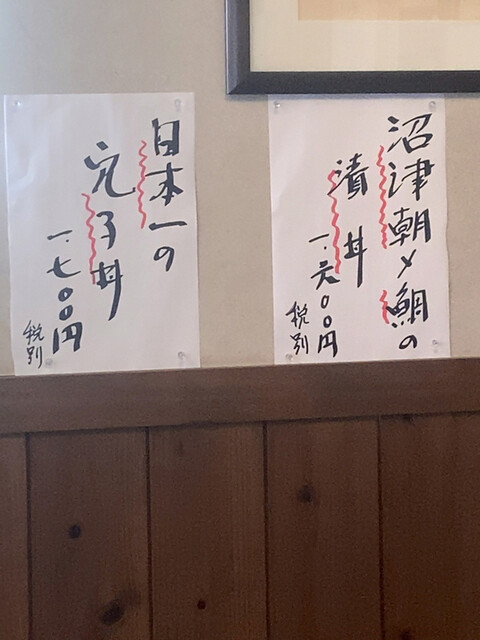 沼津朝〆鯛の
漬丼
一、六〇〇円
税別
日本一の
穴子丼
一、七〇〇円
税別